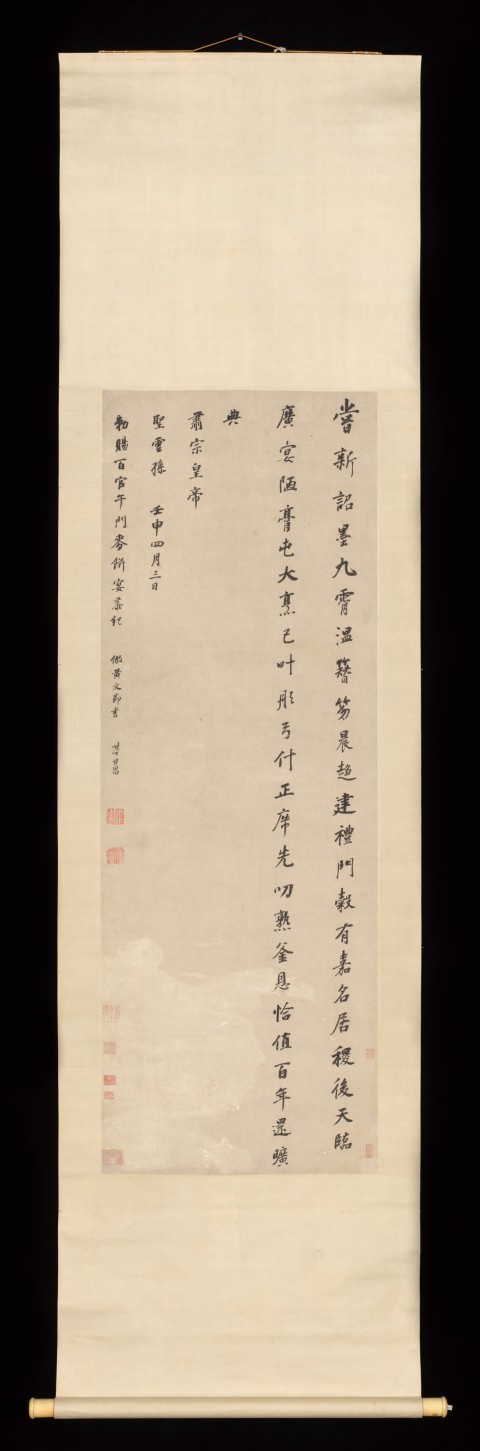 嘗新詔墨九霄溫簪笏晨趨建禮門穀有嘉名居稷後天臨
廣宴陋膏屯大烹已叶彤弓什正席先叨熟釜恩恰值百年還曠
典
肅宗皇帝
聖雲孫 壬申四月三日
勅賜百官午門麥餅宴恭紀 倣黃文節書 其昌